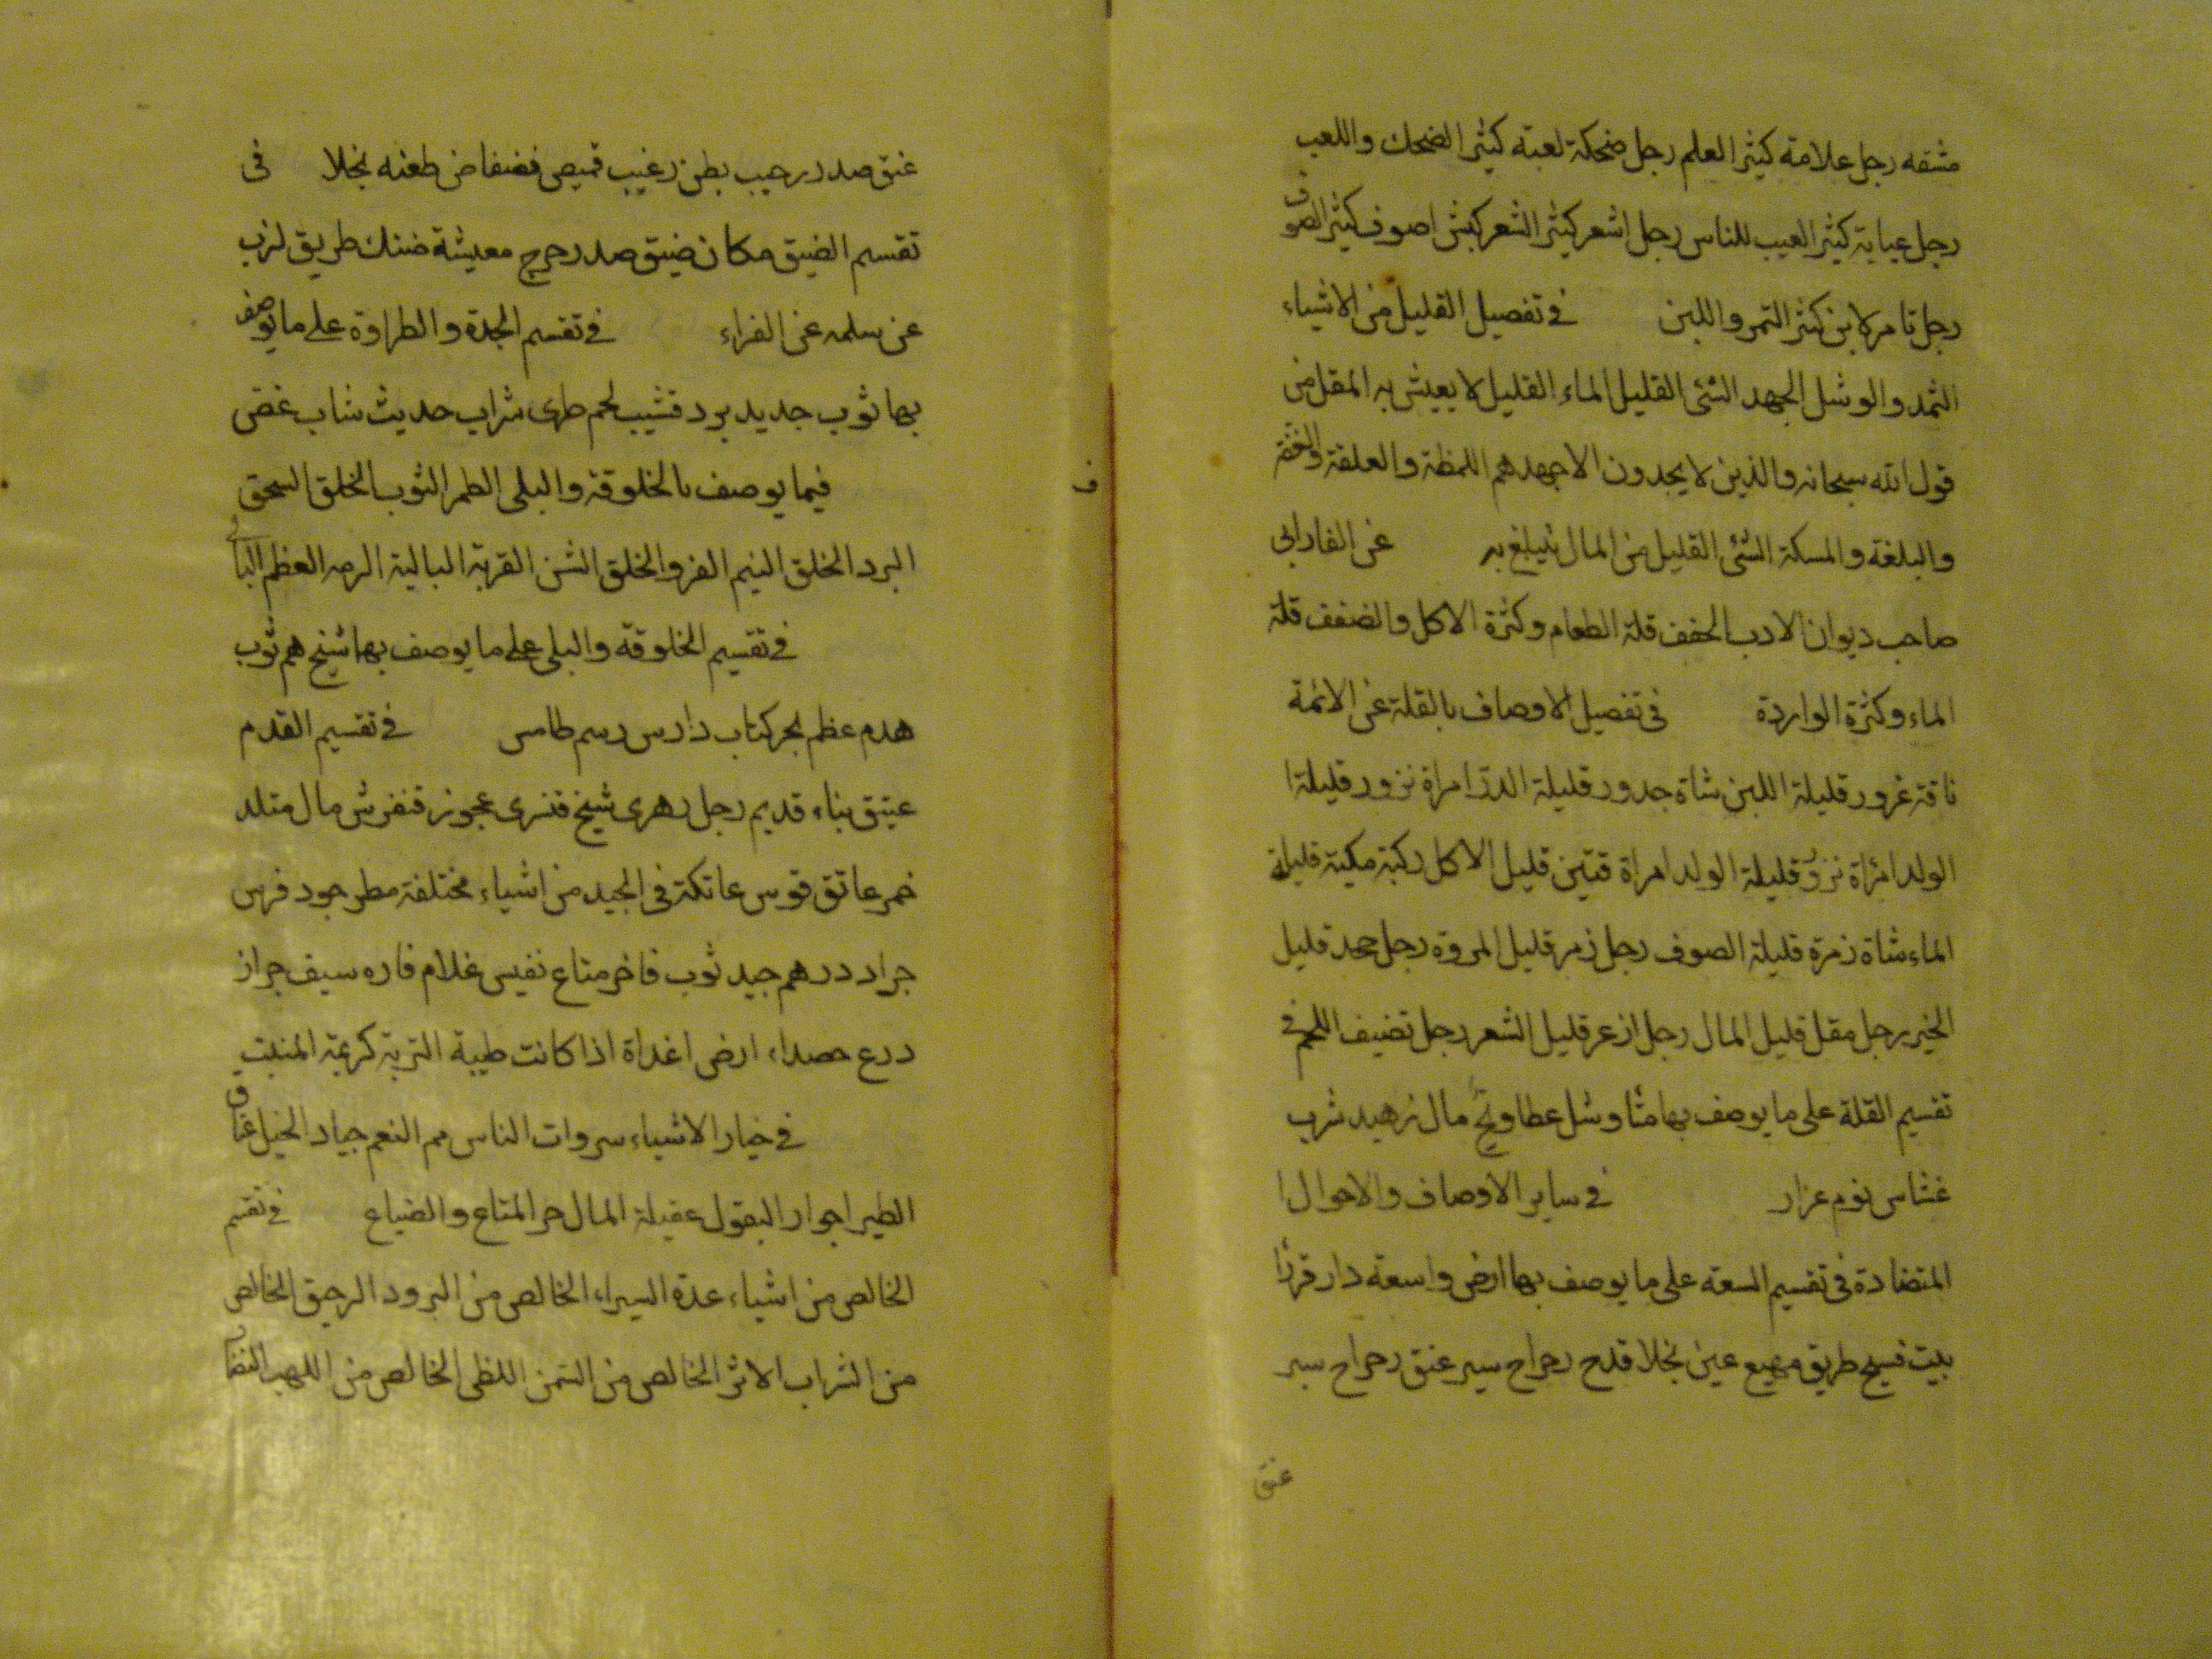 مشفه رجل علامة كيثر العلم رجل ضحكة لعبته كيثر الضحك واللعب
رجل عيابة كيثر العيب للناس رجل اشعر كيثر الشعر كبش اصوف كيثر الصوف
رجل تامر لابن كثير التمر واللبن في تفصيل القليل من الاشياء
الثمد والوشل الجهد الشئ القليل الماء القليل لا يعيش به المقل من
قول الله سبحانه والذين لا يجدون الا جهدهم اللمظة والعلقة
والبلغة والمسكة الشئ القليل من المال يتبلغ به عن الفارابي
صاحب ديوان الادب الحفف قلة الطعام وكثرة الاكل والضفف قلة
الماء وكثرة الواردة في تفصيل الاوصاف بالقلة عن الائمة
ناقة غرور قليلة اللبن شاة جدور قليلة الدر امراة نزور قليلة ا
الولد امراة نزور قليلة الولد امراة قتين قليل الاكل ركبة مكية قليلة
الماء شاة زمرة قليلة الصوف رجل زمر قليل المروة رجل جحد قليل
الخير رجل مقل قليل المال رجل ازعر قليل الشعر رجل قضيف اللحم في
تقسيم القلة على ما يوصف بها وشل عطا مال زهيد شرب
غشاش نوم عزار في ساير الاوصاف والاحوال ا
المتضادة في تقسيم السعة على ما يوصف بها ارض واسعة دار
بيت فسيح طريق مهيع عين نجلا قدح رحراح سير عنق رحراح سير
عنق
عنق صدر رحيب بطن رغيب قميص فضفاض طعنه نجلا في
تقسيم الضيق مكان ضيق صدر حرج معيشة ضنك طريق لزب
عن سلمه عن الفراء في تقسيم الجدة والطراوة على ما يوصف
بها ثوب جديد برد قشيب لحم طرى شراب حديث شاب غض
فيما يوصف بالخلوقة والبلى الطمر الثوب الخلق السحق
البرد الخلق النيم الفرو الخلق الشن القربة البالية الرمه العظم البالى
في تقسيم الخلوقة والبلى على ما يوصف بها شيخ هم ثوب
هدم عظم نخر كتاب دارس رسم طامس في تقسيم القدم
عيتق بناء قديم رجل دهرى شيخ قنسرى عجوز قنفرش مال متلد
خمر عاتق قوس عاتكة في الجيد من اشياء مختلفة مطر جود فرس
جراد درهم جيد ثوب فاخر متاع نفيس غلام فاره سيف جراز
درع حصداء ارض اغداة اذا كانت طيبة التربة كريمة المنبت
في خيار الاشياء سروات الناس حمر النعم جياد الخيل عتاق
الطير احرار البقول عقيلة المال حر المتاع والضياع في تقسيم
الخالص من اشياء عدة السيراء الخالص من البرود الرحيق الخالص
من الشراب الاثر الخالص من السمن اللظى الخالص من اللهب النضار